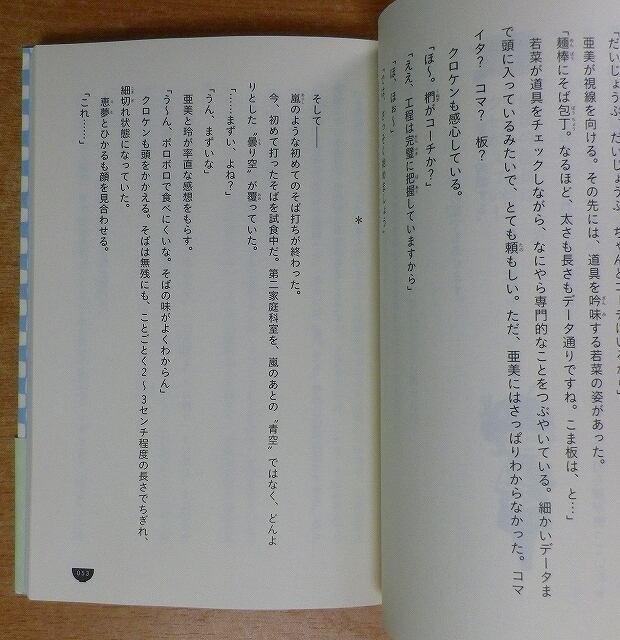 「だいじょうぶ、だいじょうぶ。ちゃんとコーチにいるから」
亜美が視線を向ける。その先には、道具を吟味する若菜の姿があった。
「麺棒にそば包丁。なるほど、太さも長さもデータ通りですね。こま板は、と…」
若菜が道具をチェックしながら、なにやら専門的なことをつぶやいている。細かいデータま
で頭に入っているみたいで、とても頼もしい。ただ、亜美にはさっぱりわからなかった。コマ
イタ？　コマ？　板？
クロケンも感心している。
「ほ～。椚がコーチか？」
「ええ、工程は完璧に把握していますから」
「ほ、ほお～」
＊
そして――
嵐のような初めてのそば打ちが終わった。
今、初めて打ったそばを試食中だ。第二家庭科室を、嵐のあとの〝青空〟ではなく、どんよ
りとした〝曇り空〟が覆っていた。
「……まずい、よね？」
「うん、まずいな」
亜美と玲が率直な感想をもらす。
「う～ん、ボロボロで食べにくいな。そばの味がよくわからん」
クロケンも頭をかかえる。そばは無残にも、ことごとく2～3センチ程度の長さでちぎれ、
細切れ状態になっていた。
恵夢とひかるも顔を見合わせる。
「これ……」
053